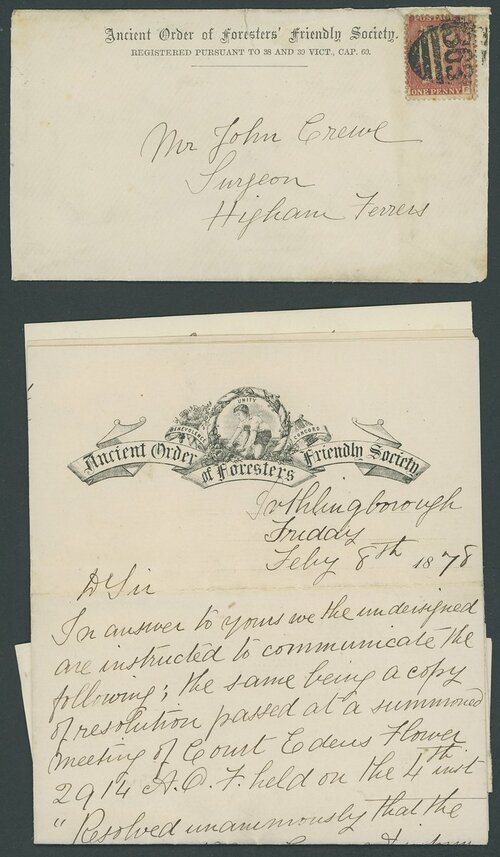 Ancient Order of Foresters' Friendly Society.
REGISTERED PURSUANT TO 38 AND 39 VICT., CAP. 60.
ONE PENNY
Mr John Crewe
Surgeon
Higham Ferrers
UNITY
BENEVOLENCE
CONCORD
Ancient Order of Foresters Friendly Society.
Irthlingborough
Friday
Feby 8th 1878
Dr Sir
In answer to yours we the undersigned
are instructed to communicate the
following; the same being a copy
of resolution passed at a summoned
meeting of Court Edens Flower
2914 A.O.F. held on the 4th inst
"Resolved unanimously that the